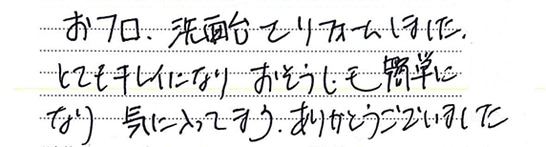 おフロ、洗面台とリフォームしました。
とてもキレイになり おそうじも簡単に
なり 気に入ってます。ありがとうございました